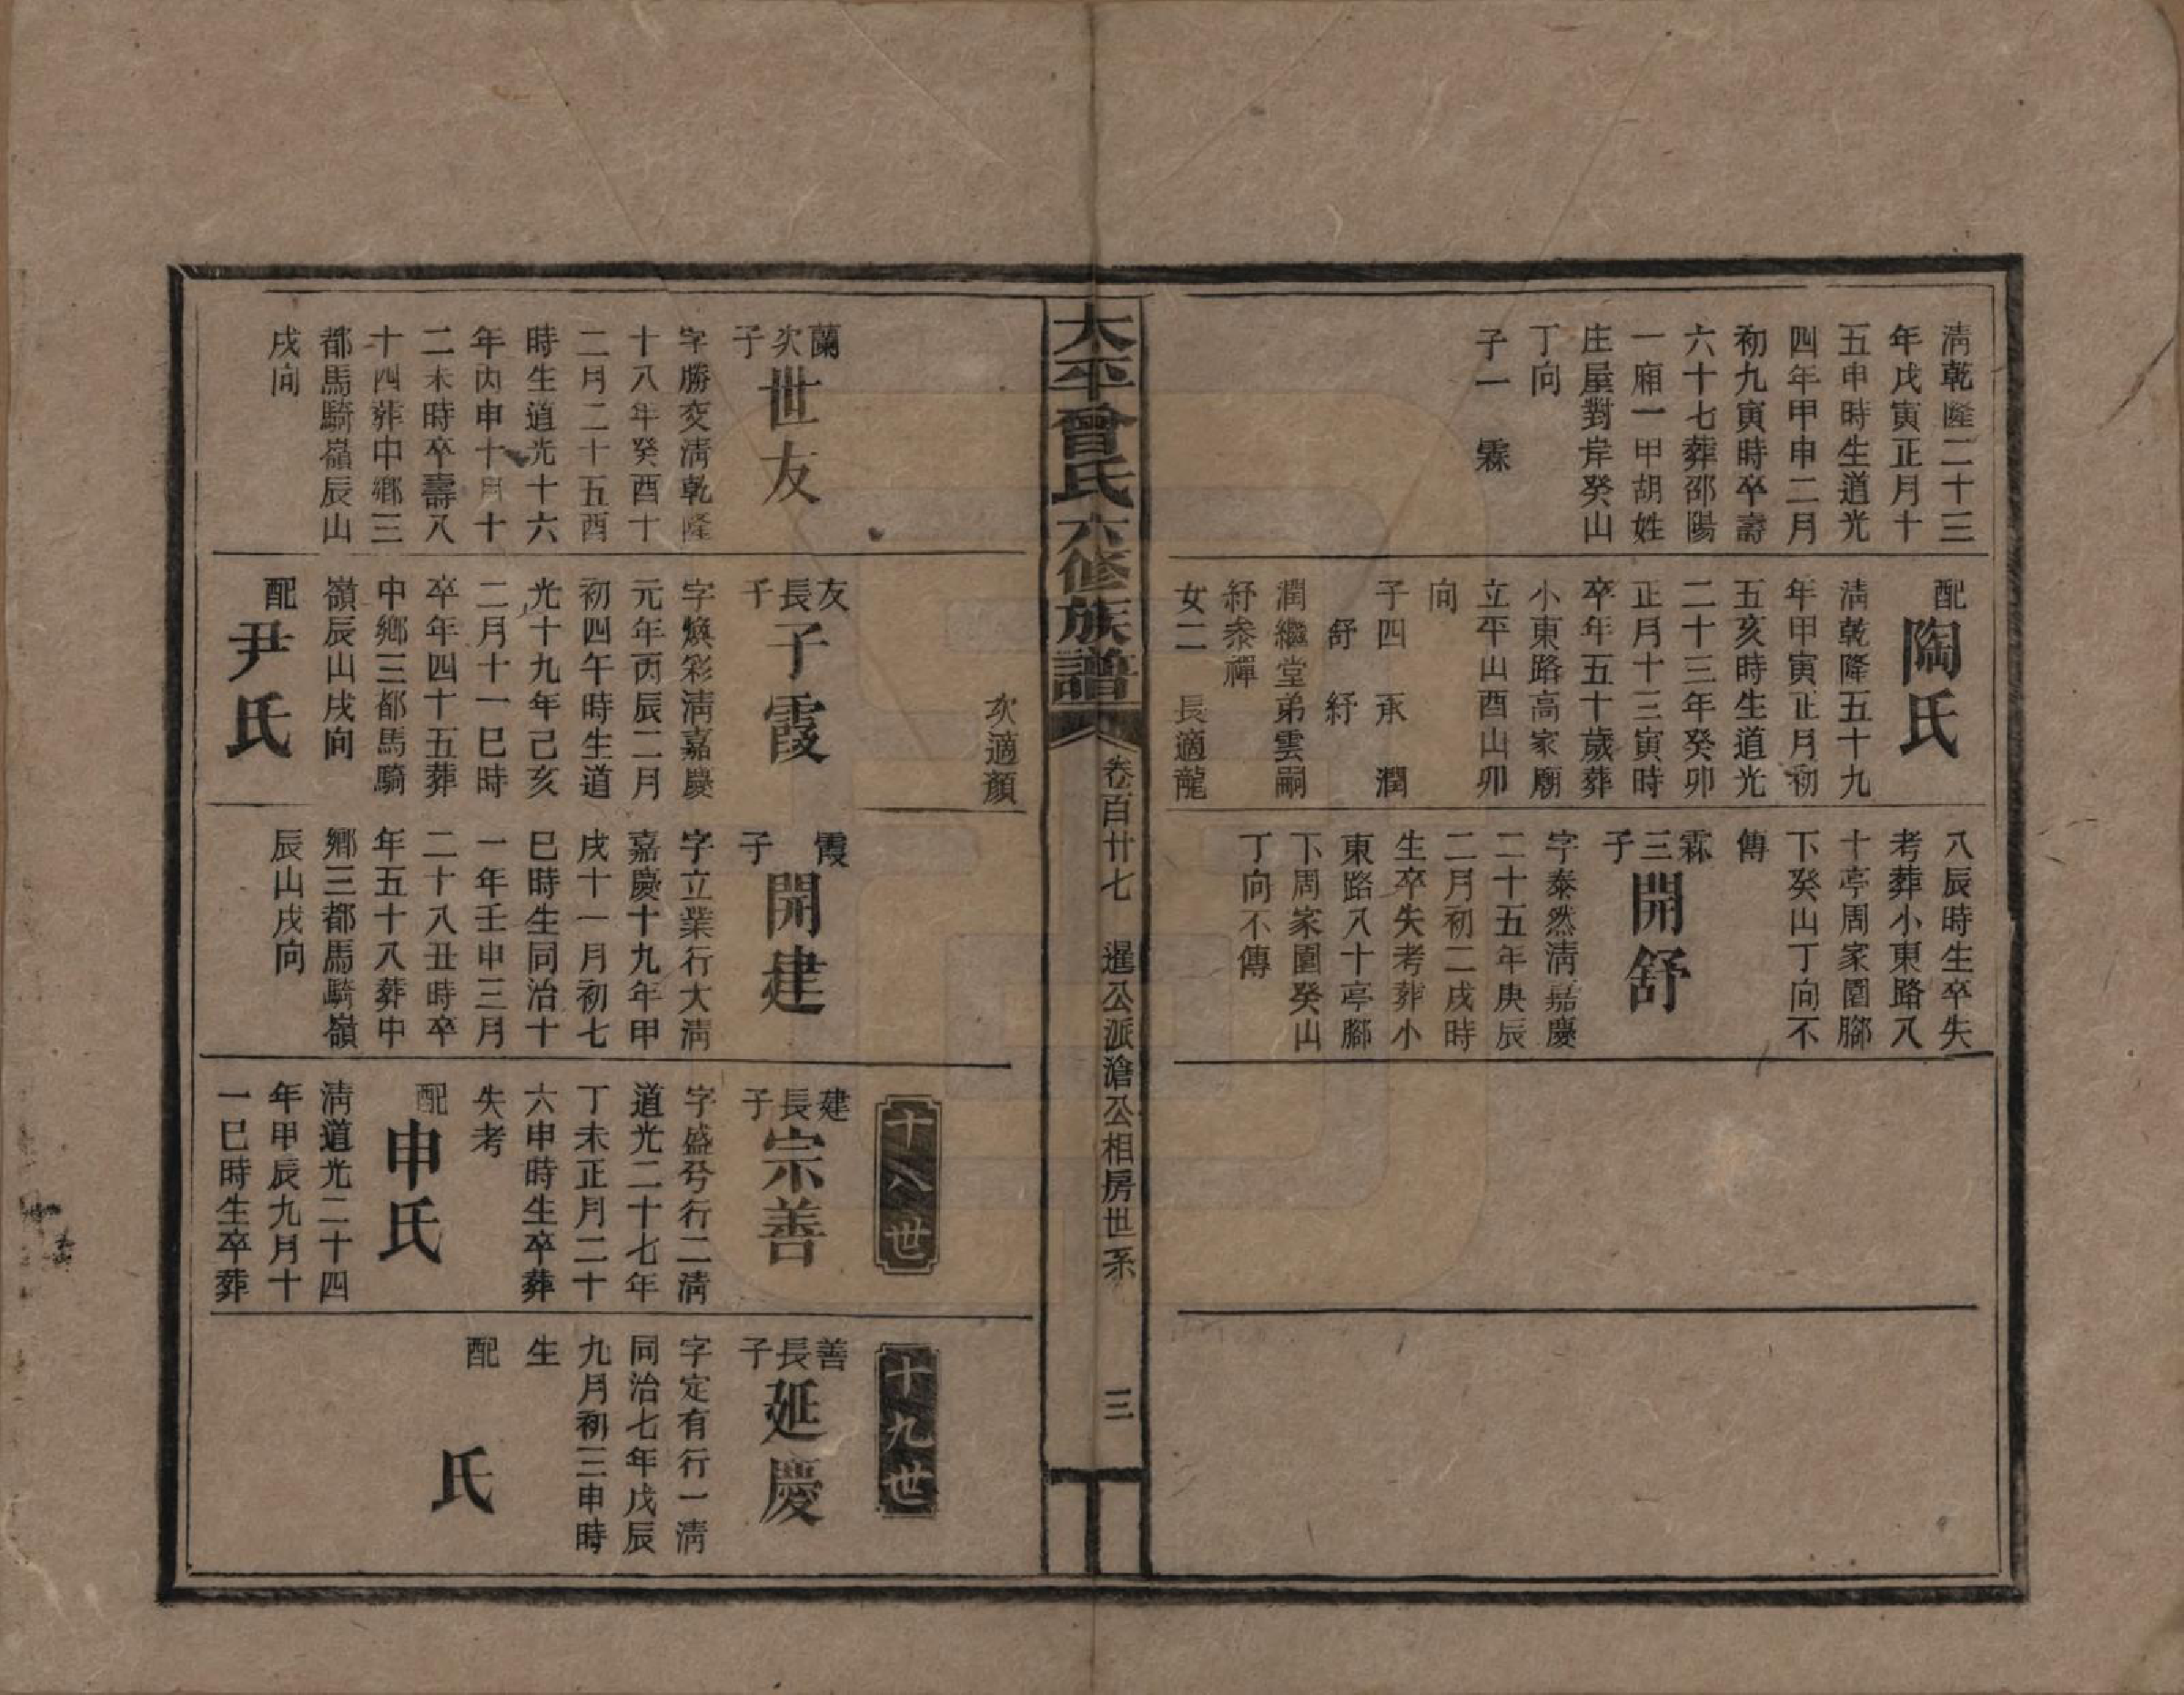 清乾隆二十三
年戊寅正月十
五申時生道光
四年甲申二月
初九寅時卒壽
六十七葬邵陽
一廂一甲胡姓
庄屋對岸癸山
丁向
子一　霖
配
陶氏
清乾隆五十九
年甲寅正月初
五亥時生道光
二十三年癸卯
正月十三寅時
卒年五十歲葬
小東路高家廟
立平山酉山卯
向
子四　承　潤
舒　紓
潤繼堂弟雲嗣
紓叅禪
女二　長適龍
八辰時生卒失
考葬小東路八
十亭周家園腳
下癸山丁向不
傳
霖三子
開舒
字泰然清嘉慶
二十五年庚辰
二月初二戌時
生卒失考葬小
東路八十亭腳
下周家園癸山
丁向不傳
太平曾氏六修族譜
卷百廿七　暹公派滄公相房世系　三
蘭次子
世友
字勝交清乾隆
十八年癸酉十
二月二十五酉
時生道光十六
年丙申十月十
二未時卒壽八
十四葬中鄉三
都馬騎嶺辰山
戌向
次適顏
友長子
子霞
字煥彩清嘉慶
元年丙辰二月
初四午時生道
光十九年己亥
二月十一巳時
卒年四十五葬
中鄉三都馬騎
嶺辰山戌向
配
尹氏
霞子
開建
字立業行大清
嘉慶十九年甲
戌十一月初七
巳時生同治十
一年壬申三月
二十八丑時卒
年五十八葬中
鄉三都馬騎嶺
辰山戌向
十八世
建長子
宗善
字盛兮行二清
道光二十七年
丁未正月二十
六申時生卒葬
失考
配
申氏
清道光二十四
年甲辰九月十
一巳時生卒葬
十九世
善長子
延慶
字定有行一清
同治七年戊辰
九月初三申時
生
配
氏